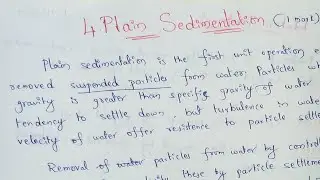 4. Plain Sedimentation (1 mark)
Plain sedimentation is the first unit operation
removed suspended particles from water. Particles
gravity is greater than specific gravity of water
tendency to settle down. but turbulence in water
velocity of water offer resistence to particle
Removal of water particles from water by
these by particle